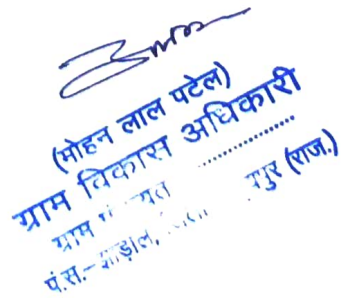 (मोहन लाल पटेल)
ग्राम विकास अधिकारी
ग्राम ..............
पं.स.-झाड़ोल, (राज.)